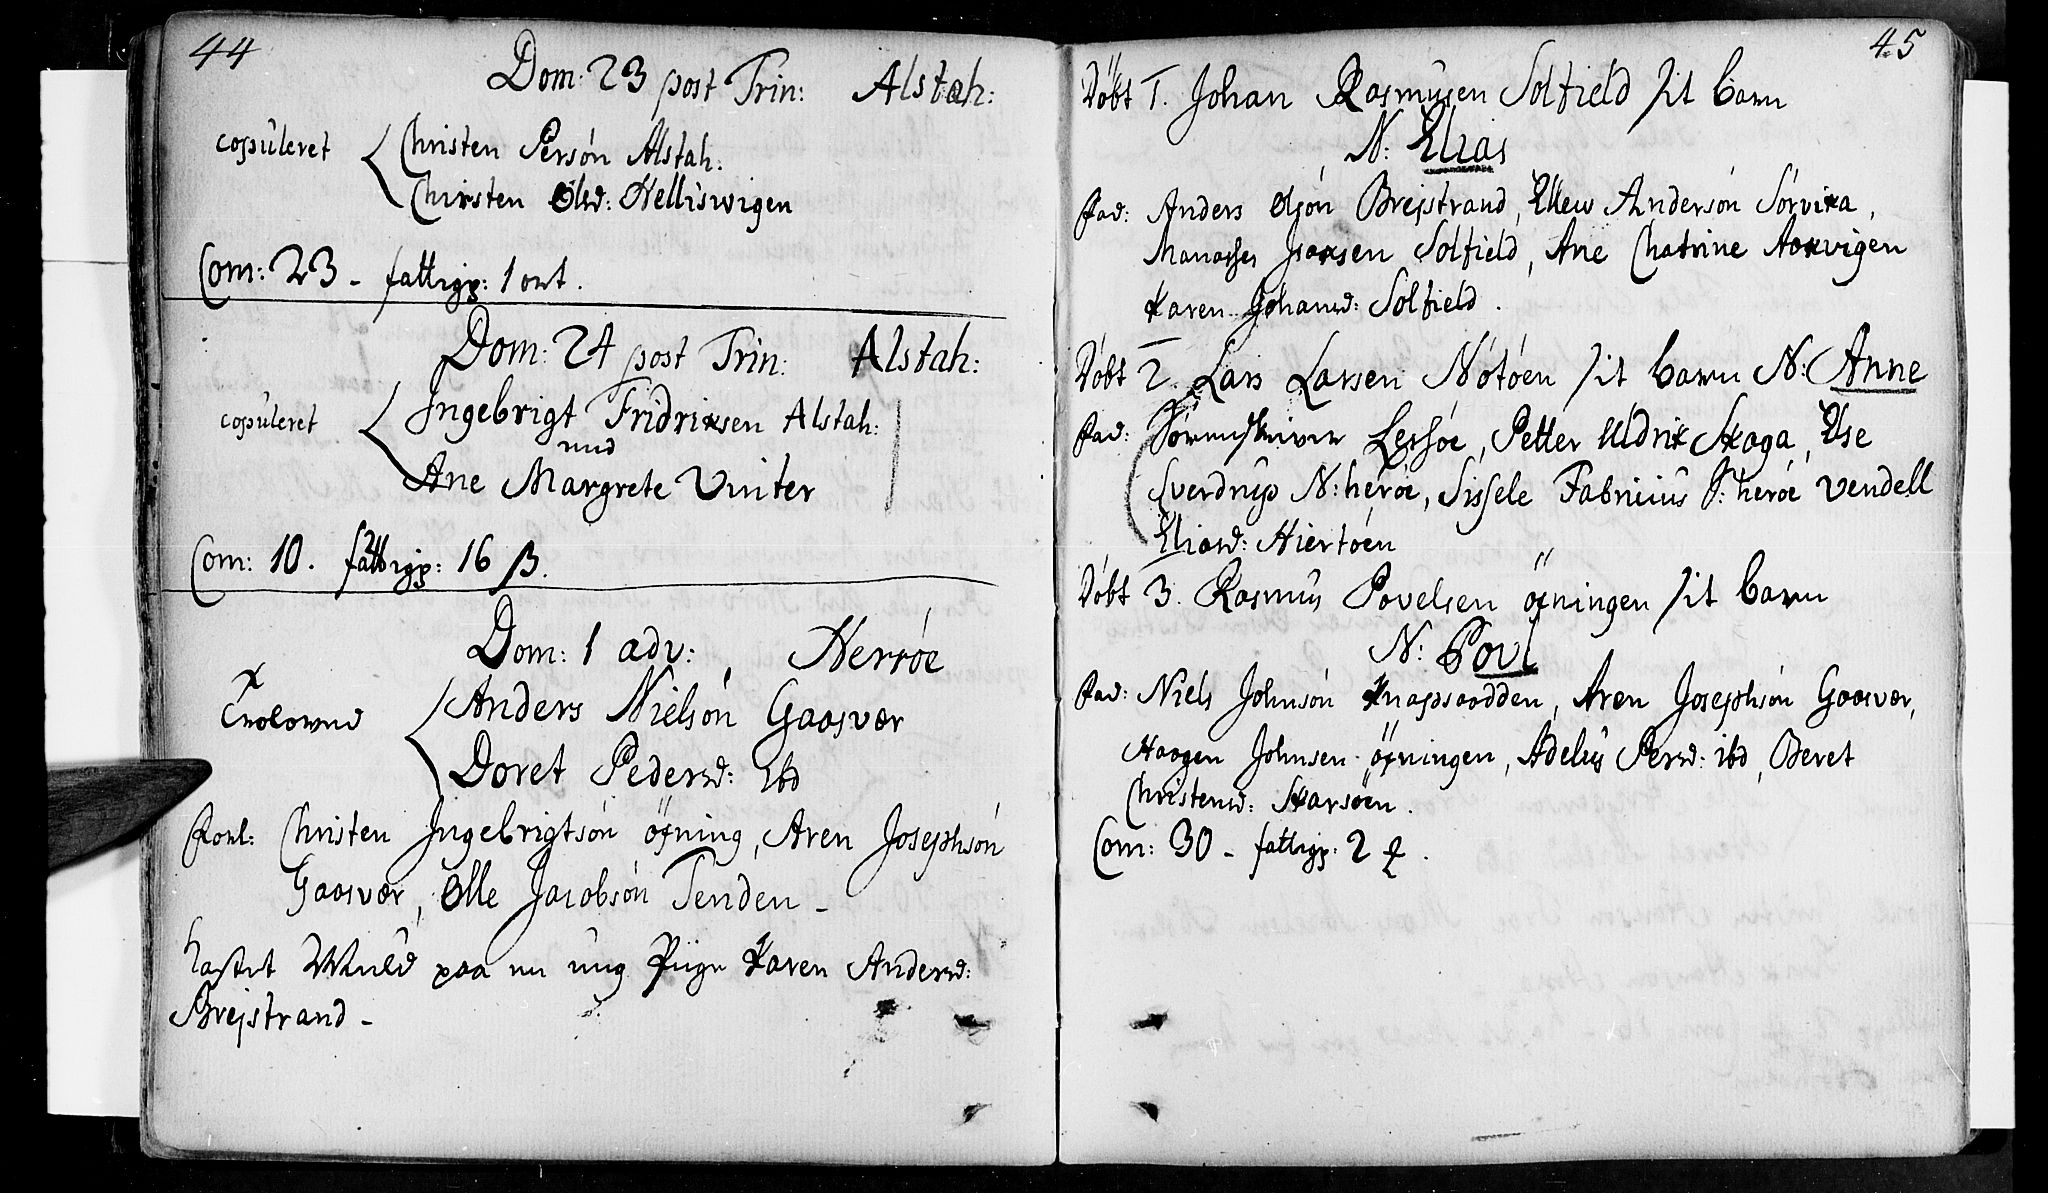 44
Dom: 23 post Trin: Alstah:
copuleret
Christen Persøn Alstah:
Chirsten Olsd: Helliswigen
Com: 23 - fattigp: 1 ort.
Dom: 24 post Trin: Alstah:
copuleret
Ingebrigt Fridrixsen Alstah:
med
Ane Margrete Vinter
Com: 10. fattigp: 16 β.
Dom: 1 adv: Herrøe
x
Trolowed
Anders Nielsøn Gaasvær
Doret Pedersd: ibd
Forl: Christen Ingebrigtsøn øxning, Aren Josephsøn
Gaasvær, Olle Jacobsøn Tenden -
kastet Muld paa en ung Piige Karen Andersd:
Brejstrand -
45
Døbt 1. Johan Rasmusen Solfield sit barn
N: Elias
Fad: Anders Olsøn Brejstrand, Ellew Andersøn Sørvika,
Manasses Isaxsen Solfield, Ane Chatrine Aaxvigen
Karen Johansd: Solfield.
Døbt 2. Lars Larsen Nötöen sit barn N: Anne
Fad: Sørenskriver Lersøe, Petter Uldrix Skaga, Else
Sverdrup N:herøe, Sissele Fabricius S:herøe Vendell
Eliasd: Hiertøen
Døbt 3. Rasmus Povelsen øxningen sit barn
N: Povl
Fad: Niels Johnsøn Knapsaadden, Aren Josephsøn Gaasvær,
Haagen Johnsen øxningen, Adelus Persd: ibd, Beret
Christensd: Skarsøen.
Com: 30 - fattigp: 2